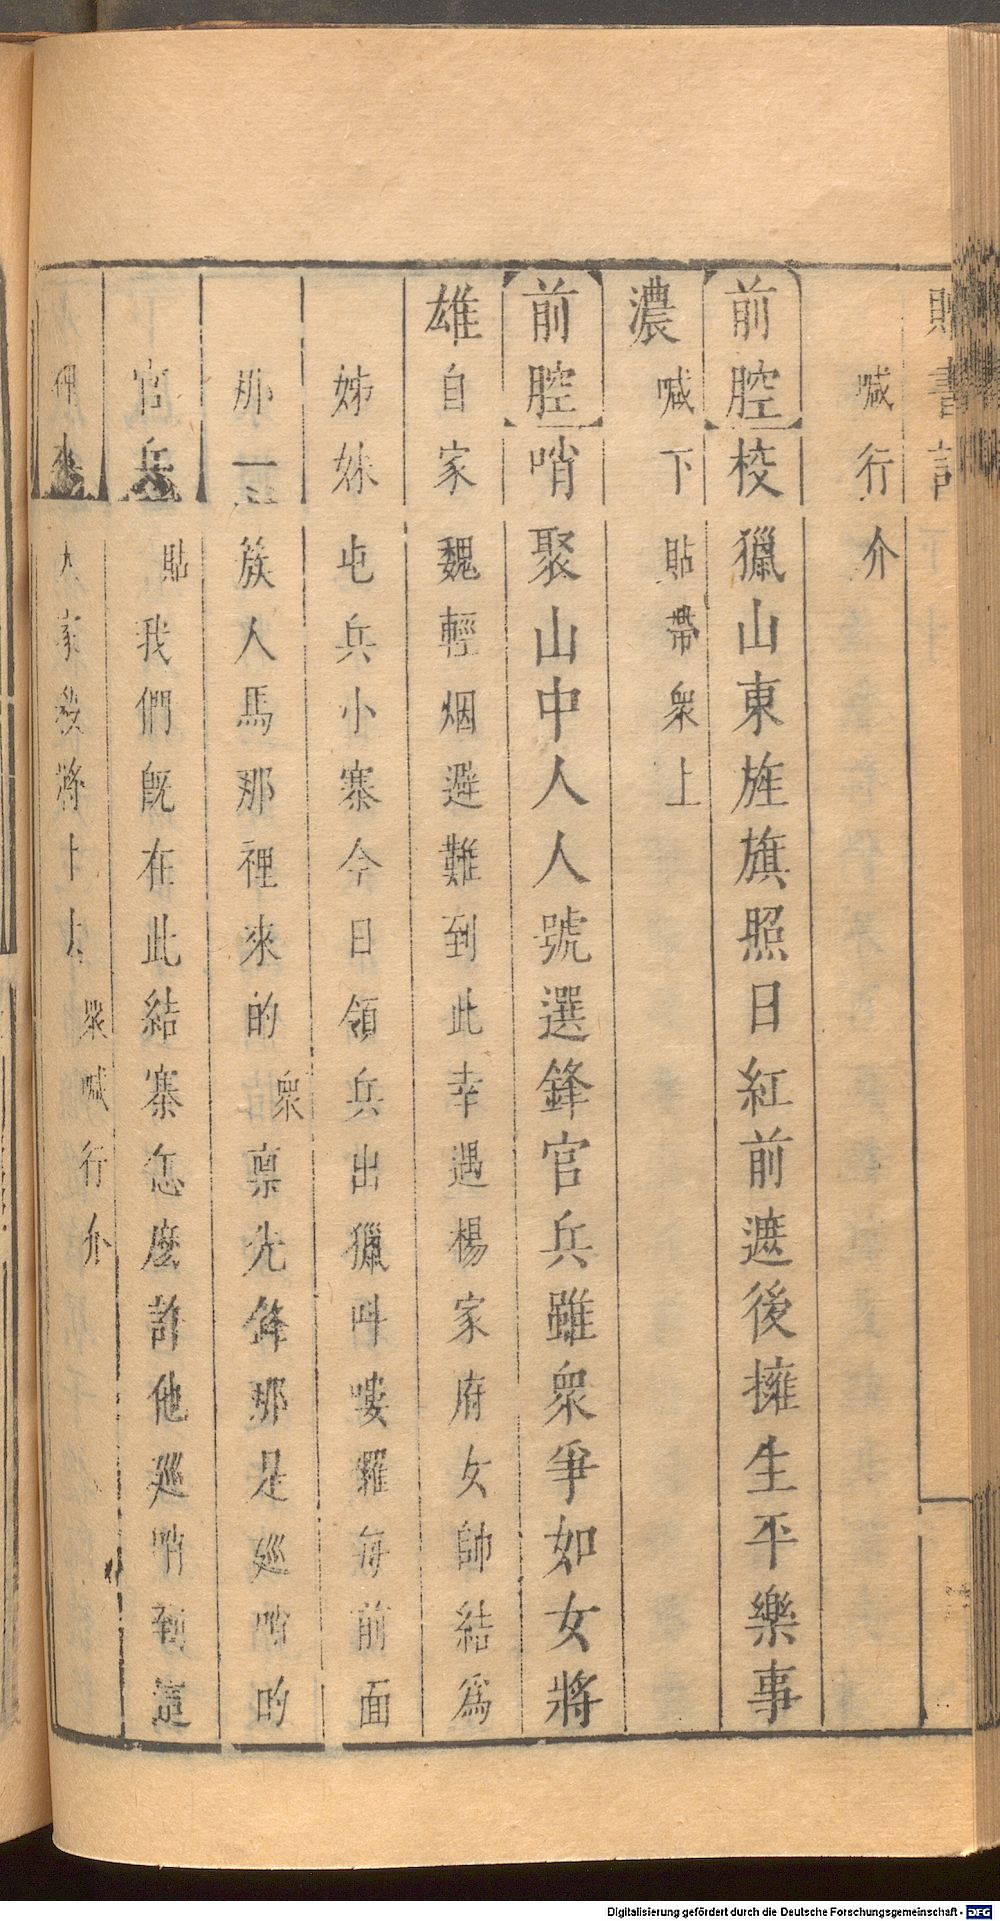 喊行介
前腔校獵山東旌旗照日紅前遮後擁生平樂事
濃喊下貼帶衆上
前腔哨聚山中人人號選鋒官兵雖衆爭如女將
雄自家魏輕烟避難到此幸遇楊家府女帥結爲
姊妹屯兵小寨今日領兵出獵叫嘍囉每前面
那一族人馬那裡來的衆稟先鋒那是巡哨的
官兵貼我們旣在此結寨怎麽許他巡哨到這
裡來大家殺將上去衆喊行介
Digitalisierung gefördert durch die Deutsche Forschungsgemeinschaft - DFG